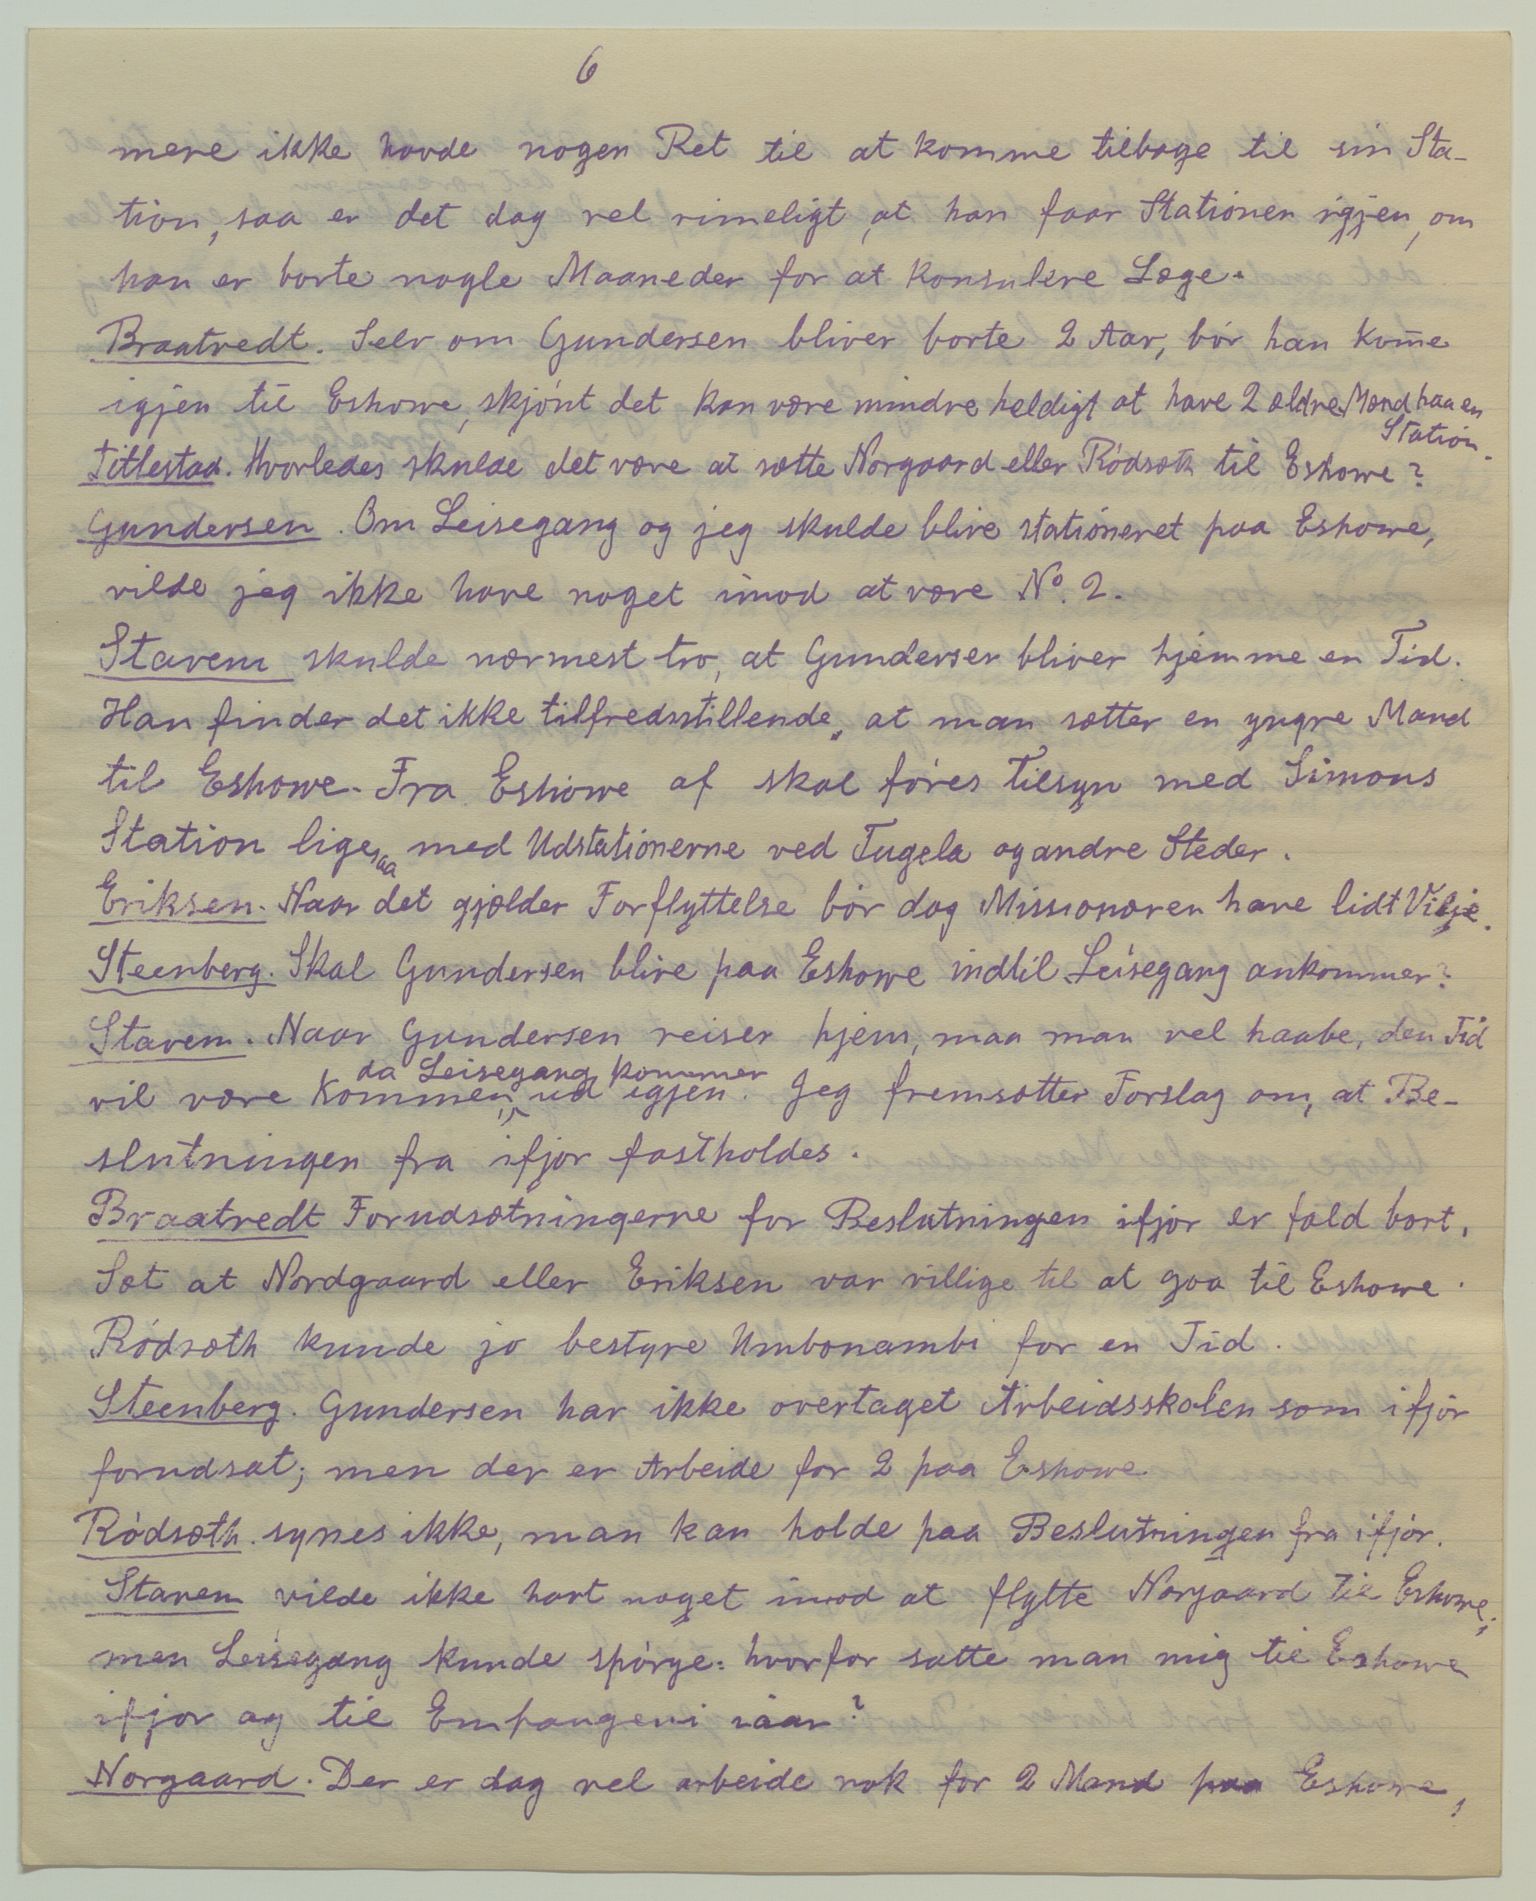 6
mere ikke havde nogen Ret til at komme tilbage til sin Sta-
tion, saa er det dog vel rimeligt, at han faar Stationen igjen, om
han er borte nogle Maaneder for at konsulere Læge.
Braatvedt. Selv om Gundersen bliver borte 2 Aar, bör han kom̄e
igjen til Eshowe, skjönt det kan være mindre heldigt at have 2 ældre Mænd paa en
Station.
Titlestad. Hvorledes skulde det være at sætte Norgaard eller Rödsæth til Eshowe?
Gundersen. Om Leisegang og jeg skulde blive stationeret paa Eshowe,
vilde jeg ikke have noget imod at være No. 2.
Stavem skulde nærmest tro, at Gundersen bliver hjemme en Tid.
Han finder det ikke tilfredsstillende, at man sætter en yngre Mand
til Eshowe. Fra Eshowe af skal föres Tilsyn med Simons
Station ligesaa med Udstationerne ved Tugela og andre Steder.
Eriksen. Naar det gjælder Forflyttelse bör dog Missionæren have lidt Vilje.
Steenberg. Skal Gundersen blive paa Eshowe indtil Leisegang ankommer?
Stavem. Naar Gundersen reiser hjem, maa man vel haabe, den Tid
da Leisegang kommer
vil være kommen, ud igjen. Jeg fremsætter Forslag om, at Be-
slutningen fra ifjor fastholdes.
Braatvedt Forudsætningerne for Beslutningen ifjor er fald bort.
Sæt at Nordgaard eller Eriksen var villige til at gaa til Eshowe.
Rödsæth kunde jo bestyre Umbonambi for en Tid.
Steenberg. Gundersen har ikke overtaget Arbeidsskolen som ifjor
forudsat; men der er Arbeide for 2 paa Eshowe.
Rödsæth. synes ikke, man kan holde paa Beslutningen fra ifjor.
Stavem vilde ikke havt noget imod at flytte Norgaard til Eshowe;
men Leisegang kunde spörge: hvorfor satte man mig til Eshowe
ifjor og til Empangeni iaar?
Norgaard. Der er dog vel arbeide nok for 2 Mand paa Eshowe,